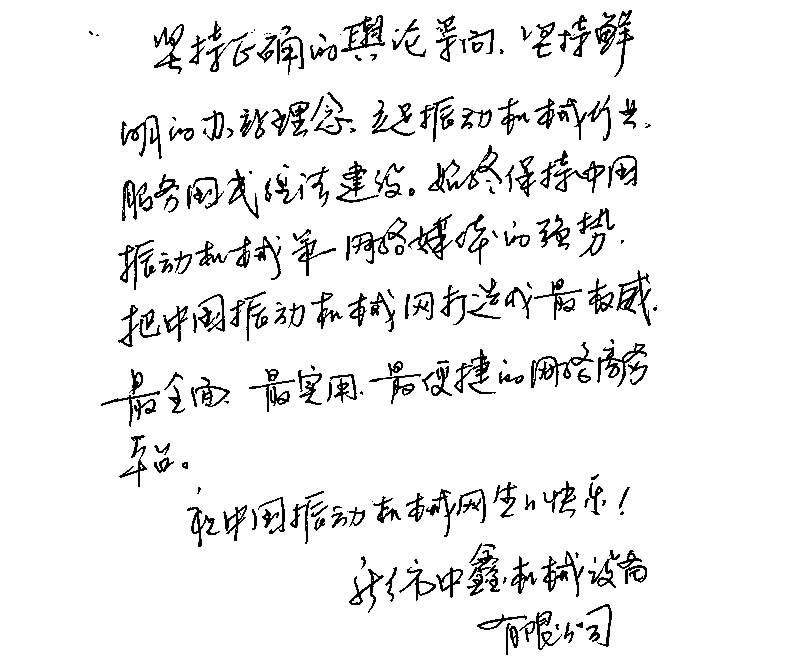 坚持正确的舆论导向、坚持鲜
明的办站理念、立足振动机械行业、
服务国民经济建设。始终保持中国
振动机械第一网络媒体的强势、
把中国振动机械网打造成最权威、
最全面、最实用、最便捷的网络商务
平台。
祝中国振动机械网生日快乐！
新乡市中鑫机械设备
有限公司